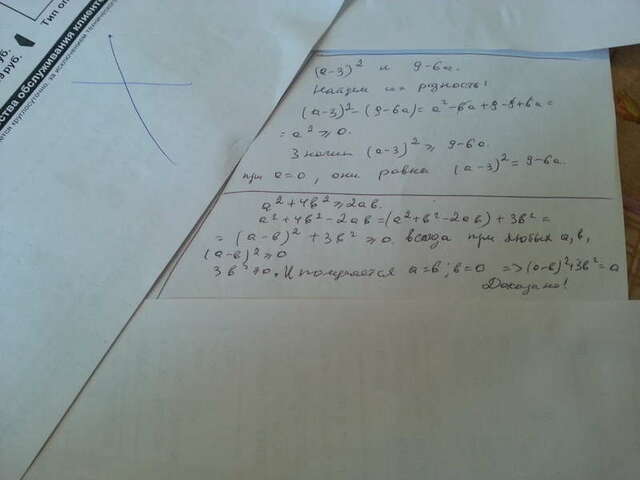 уб.
0 руб.
Тип оп
ства обслуживания клиенто
(a-3)² и 9-6a.
Найдем их разность:
(a-3)²-(9-6a)=a²-6a+9-9+6a=
=a²⩾0.
Значит (a-3)²⩾9-6a.
при a=0, они равны (a-3)²=9-6a.
a²+4в²⩾2aв.
a²+4в²-2aв=(a²+в²-2aв)+3в²=
=(a-в)²+3в²⩾0. всегда при любых a,в,
(a-в)²⩾0
3в²⩾0. И получается a=в; в=0 =>(a-в)²+3в²=0
Доказано!